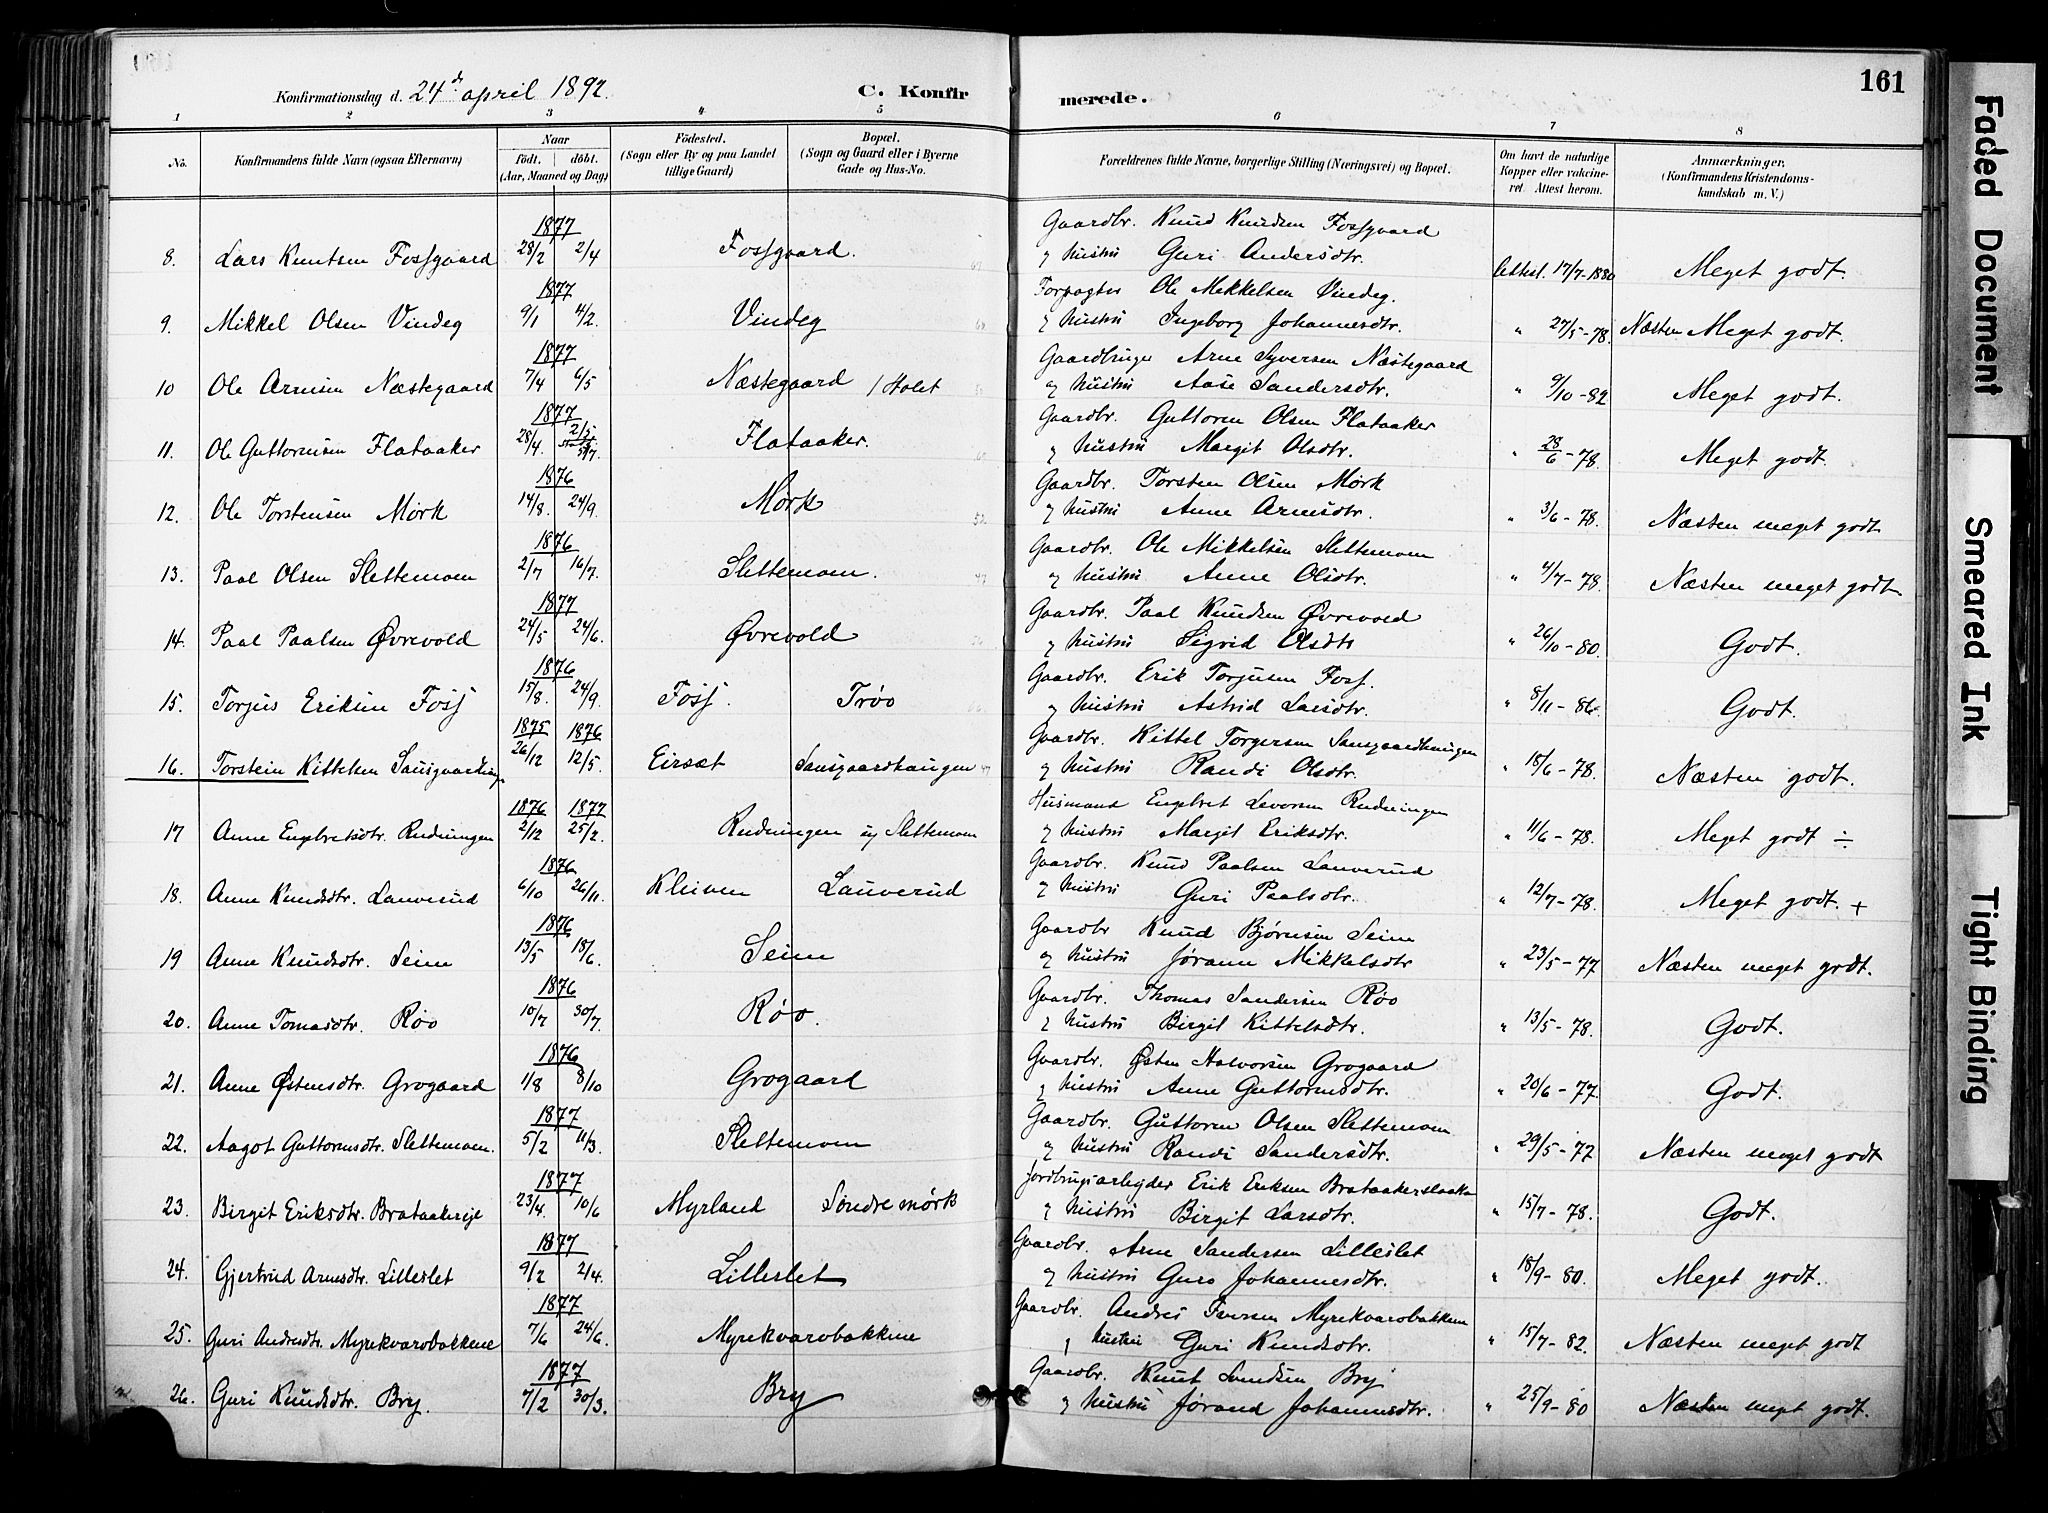 161
Konfirmationsdag d. 24de april 1892. C. Konfirmerede.
1 2 3 4 5 6 7 8
No. Konfirmandens fulde Navn (ogsaa Efternavn) Naar født. døbt. (Aar, Maaned og Dag) Födested. (Sogn eller By og paa Landet tillige Gaard) Bopæl. (Sogn og Gaard eller i Byerne Gade og Hus-No. Forældrenes fulde Navne, borgerlige Stilling (Næringsvei) og Bopæl. Om havt de naturlige Kopper eller vakcineret. Attest herom. Anmærkninger, (Konfirmandens Kristendomskundskab m. V.)
1877 Gaardbr. Knud Knudsen Fossgaard
8. Lars Knutsen Fossgaard 28/2 2/4 Fossgaard. og hustru Guri Andersdtr. 17/7-1880 Meget godt.
1877 Forpagter Ole Mikkelsen Vindeg.
9. Mikkel Olsen Vindeg 9/1 4/2. Vindeg og hustru Ingeborg Johannesdtr. " 27/5-78. Næsten Meget godt.
1877 Gaardbruger Arne Syversen Næstegaard
10 Ole Arnesen Næstegaard 7/4 6/5 Næstegaard / Holet og hustru Aase Sandersdtr. " 9/10-82 Meget godt.
1877 Gaardbr. Guttorm Olsen Flataaker
11. Ole Guttormsen Flataaker 28/4. 2/5 Flataaker. og hustru Margit Olsdtr. " 28/6-78. Meget godt.
1876 Gaardbr. Torsten Olsen Mørk
12. Ole Torstensen Mørk 14/8. 24/9. Mørk og hustru Anne Arnesdtr. " 3/6-78. Næsten meget godt
1876 Gaardbr. Ole Mikkelsen Slettemoen
13. Paal Olsen Slettemoen 2/7 16/7. Slettemoen. og hustru Anne Olsdtr. " 4/7-78. Næsten meget godt.
1877 Gaardbr. Paal Knudsen Øvrevold
14. Paal Paalsen Øvrevold 24/5 24/6. Øvrevold og hustru Sigrid Olsdtr " 26/10-80. Godt.
1876 Gaardbr. Erik Torjusen Foss.
15. Torjus Eriksen Foss 15/8. 24/9. Foss. Trøo og hustru Astrid Larsdtr. " 8/11-86. Godt.
1875 1876 Gaardbr. Kittel Torgersen
16. Torstein Kittelsen 26/12 12/5. Eirsæt Sausgaardhaugen og hustru Randi Olsdtr. " 18/6-78. Næsten godt.
1876 1877 Husmand Engebret Levorsen Rudningen
17 Anne Engebretsdtr. Rudningen 2/12 25/2. Rudningen og Slettemoen og hustru Margit Eriksdtr. " 11/6-78. Meget godt ÷
1876 Gaardbr. Knud Paalsen Lauverud
18. Anne Knudsdtr. Lauverud 6/10 26/11. Kleiven Lauverud og hustru Guri Paalsdtr. " 12/7-78. Meget godt. +
1876 Gaardbr Knud Bjørnsen Seim
19 Anne Knudsdtr. Seim 13/5 18/6. Seim og hustru Jørann Mikkelsdtr " 23/5-77 Næsten meget godt.
1876 Gaardbr. Thomas Sandersen Røo
20. Anne Tomasdtr. Røo 10/7 30/7. Røo. og hustru Birgit Kittelsdtr. " 13/5-78. Godt.
1876 Gaardbr. Østen Halvorsen Grogaard
21. Anne Østensdtr. Grogaard 1/8 8/10 Grogaard og hustru Anne Guttormsdtr. " 20/6-77. Godt.
1877 Gaardbr. Guttorm Olsen Slettemoen
22. Aagot Guttormsdtr. Slettemoen. 5/2 11/3. Slettemoen og hustru Randi Sandersdtr. " 29/5-77 Næsten meget godt
1877 Jordbrugsarbeyder Erik Eriksen
23. Birgit Eriksdtr. Brataakereje 23/4. 10/6 Myrland Søndre mørk og hustru Birgit Larsdtr. " 15/7-78. Godt.
1877 Gaardbr. Arne Sandersen Lilleslet
24. Gjertrud Arnesdtr. Lilleslet 9/2 2/4. Lilleslet og hustru Guro Johannesdtr. " 18/9-80. Meget godt.
1877 Gaardbr. Andres Iversen Myrekvarobakken
25. Guri Andresdtr. Myrekvarobakkene 7/6 24/6. Myrekvarobakkene og hustru Guri Knudsdtr. " 15/7-82. Næsten meget godt
1877 Gaardbr. Knut Svendsen Bry
26. Guri Knudsdtr. Bry. 7/2 30/3. Bry og hustru Jørand Johannesdtr. " 25/9-80 Næsten meget godt.
Faded Document
Smeared Ink
Tight Binding